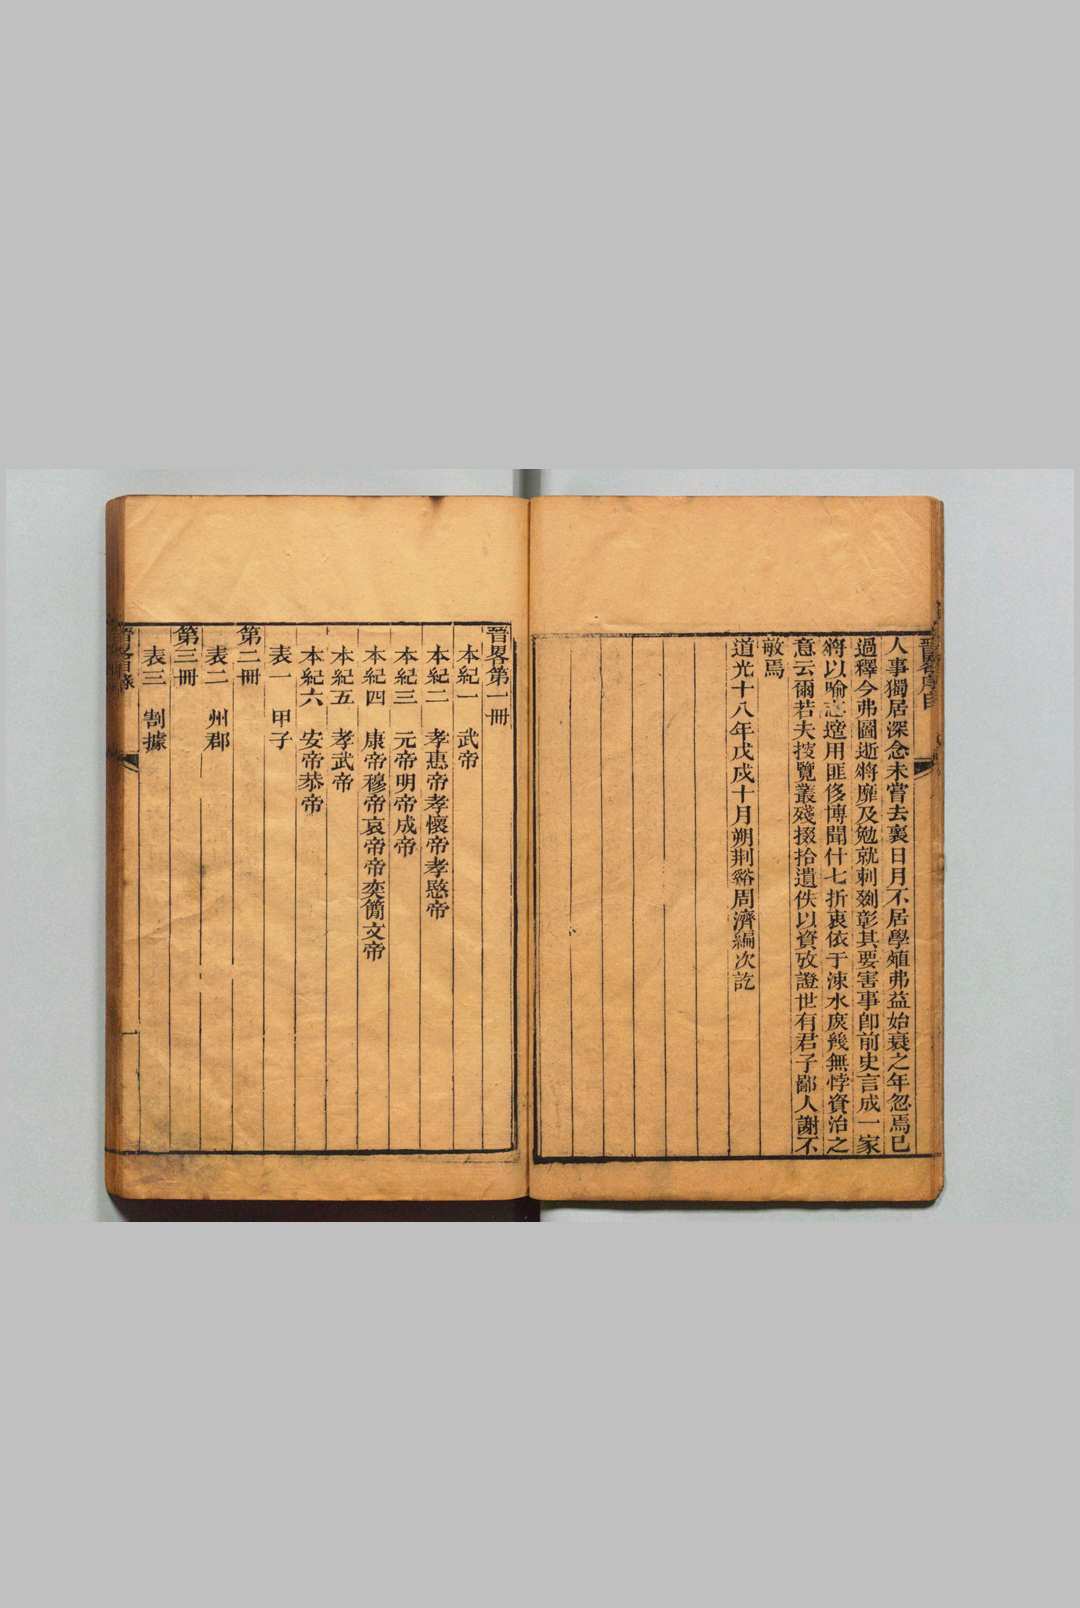 人事獨居深念未嘗去褱日月不居學殖弗益始衰之年忽焉已
過釋今弗圖逝將靡及勉就剞劂彰其要害事卽前史言成一家
將以喻志適用匪侈博聞什七折衷依于涑水庶幾無悖資治之
意云爾若夫披覽叢殘掇拾遺佚以資攷證世有君子鄙人謝不
敏焉
道光十八年戊戌十月朔荆谿周濟編次訖
晉畧第一冊
本紀一 武帝
本紀二 孝惠帝孝懷帝孝愍帝
本紀三 元帝明帝成帝
本紀四 康帝穆帝哀帝帝奕簡文帝
本紀五 孝武帝
本紀六 安帝恭帝
表一 甲子
第二冊
表二 州郡
第三冊
表三 割據
晉畧目錄 一